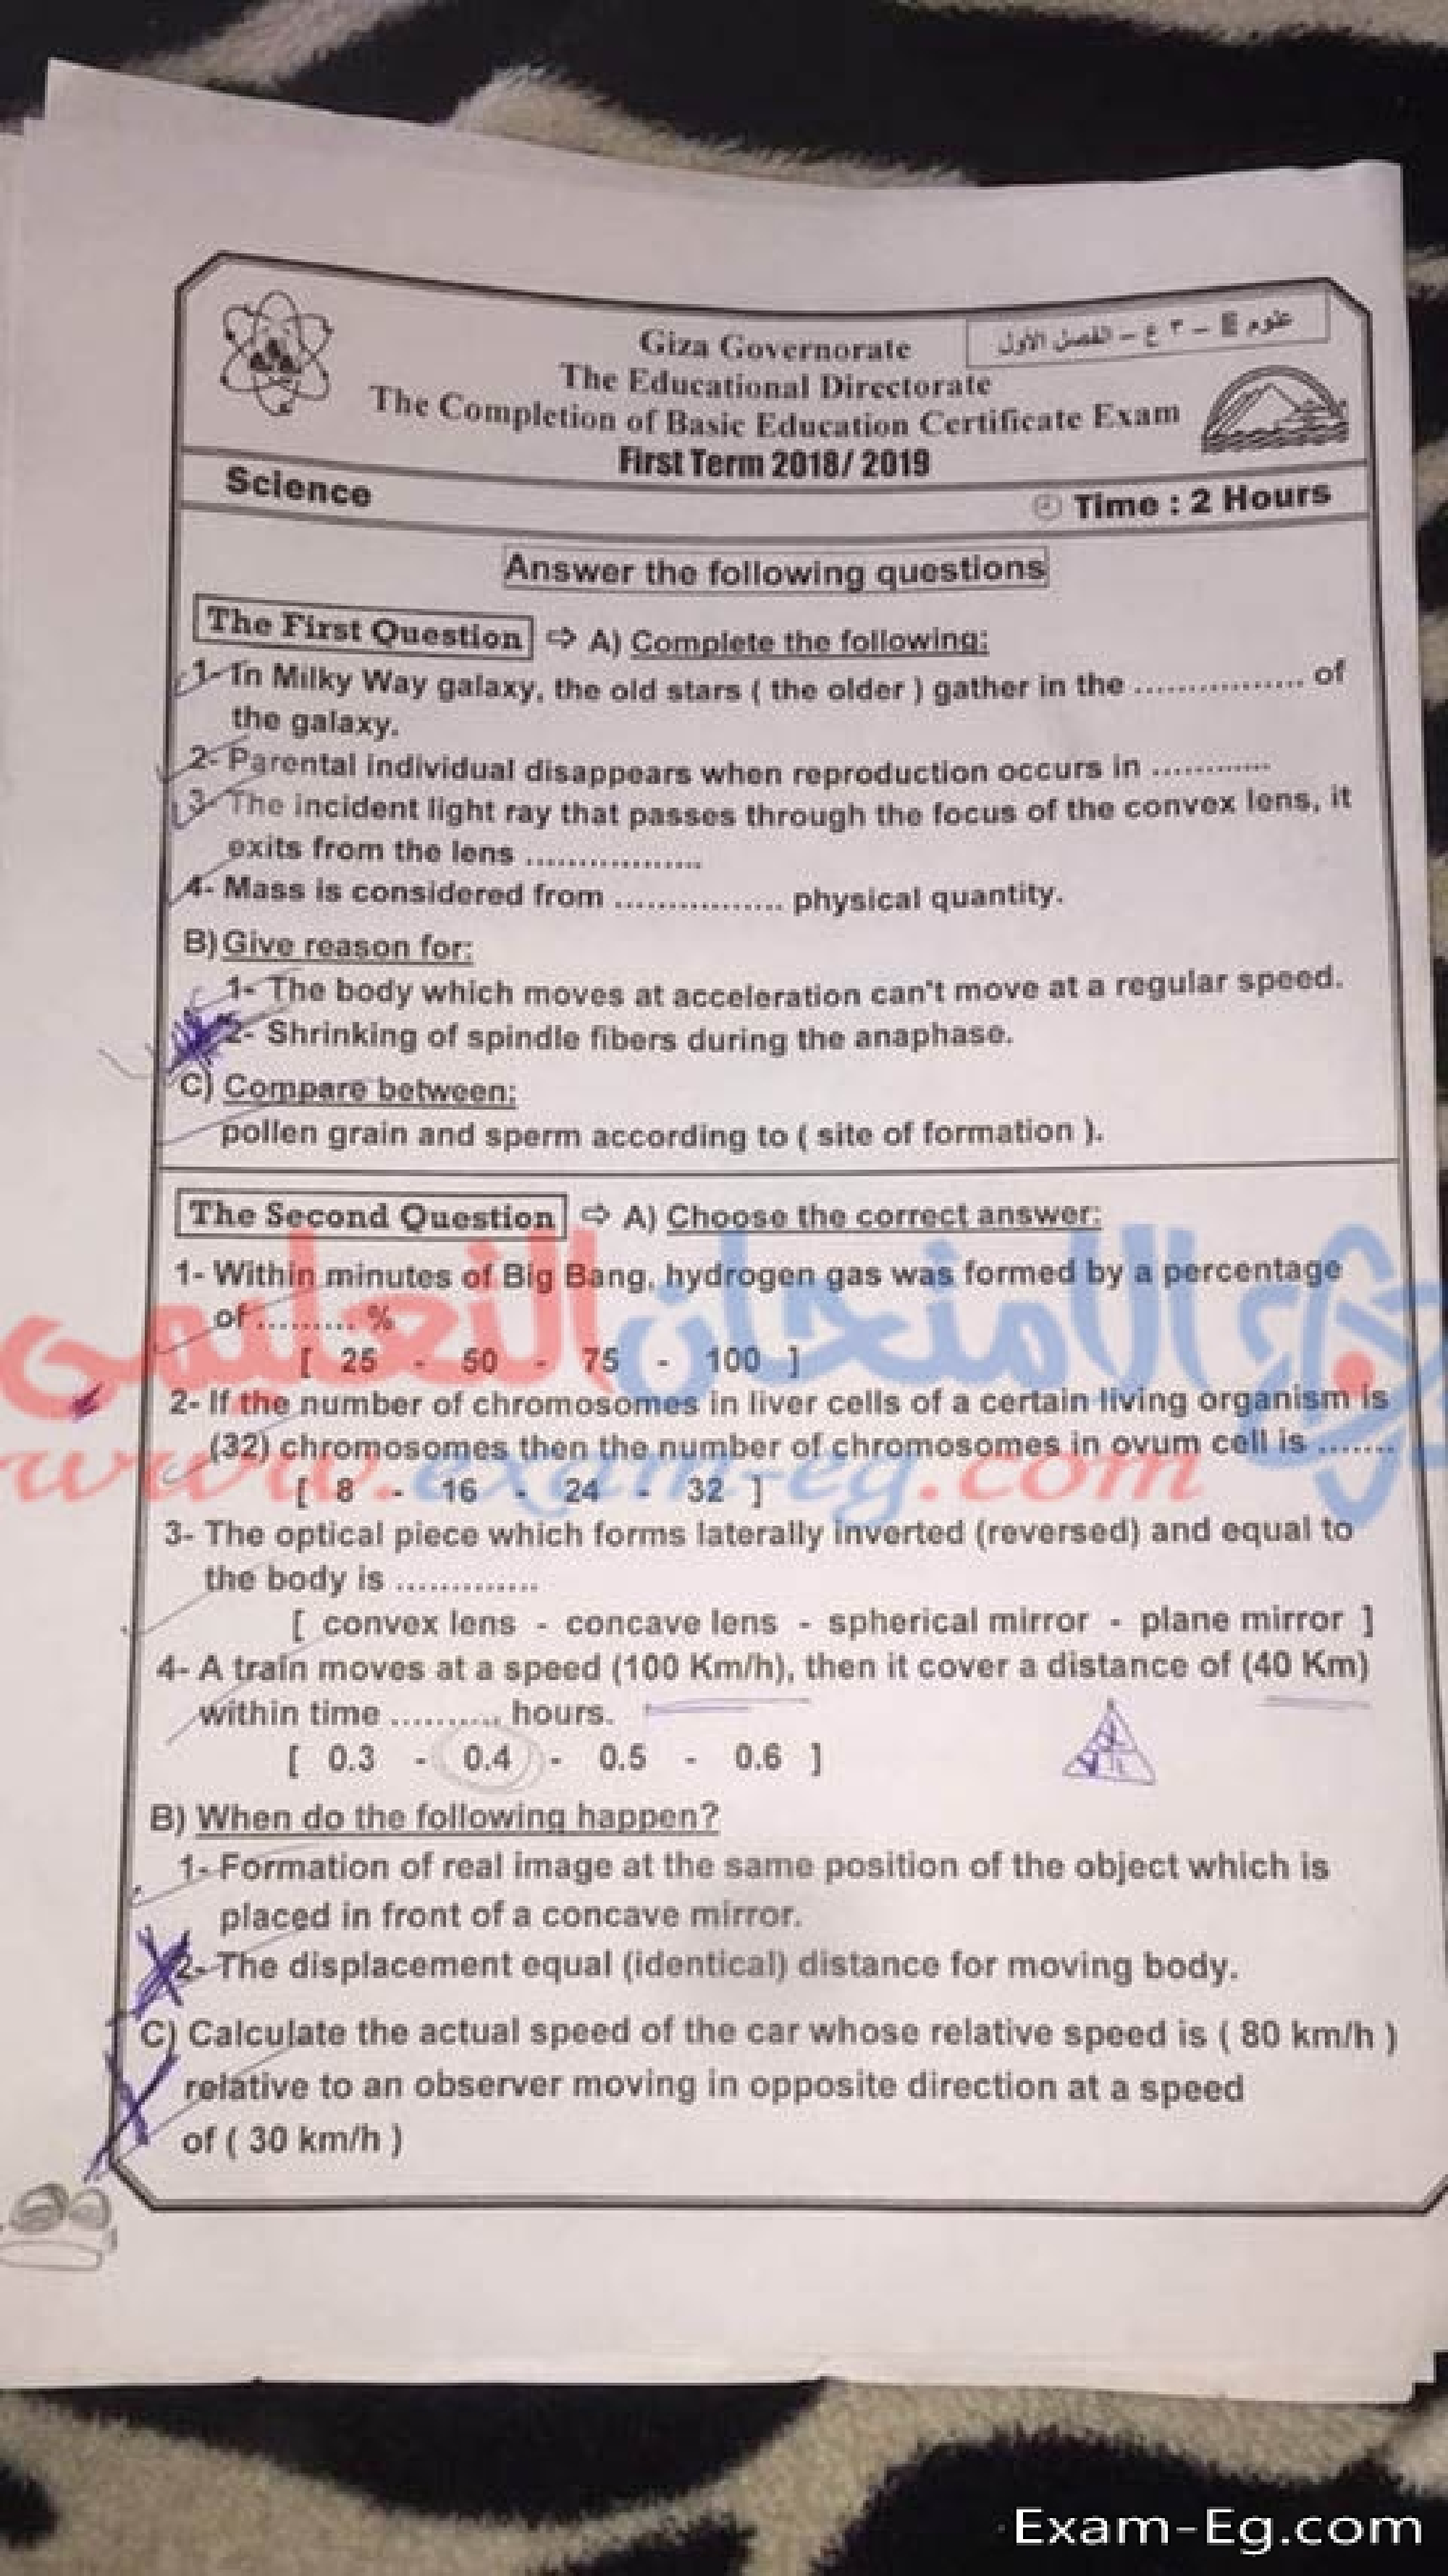 علوم E – ٣ ع – الفصل الأول
Giza Governorate
The Educational Directorate
The Completion of Basic Education Certificate Exam
First Term 2018/ 2019
Science
Time : 2 Hours
Answer the following questions
The First Question ⇨ A) Complete the following:
1- In Milky Way galaxy, the old stars ( the older ) gather in the ................ of
the galaxy.
2- Parental individual disappears when reproduction occurs in ............
3- The incident light ray that passes through the focus of the convex lens, it
exits from the lens .................
4- Mass is considered from ................ physical quantity.
B) Give reason for:
1- The body which moves at acceleration can't move at a regular speed.
2- Shrinking of spindle fibers during the anaphase.
C) Compare between:
pollen grain and sperm according to ( site of formation ).
The Second Question ⇨ A) Choose the correct answer:
1- Within minutes of Big Bang, hydrogen gas was formed by a percentage
of ......... %
[ 25 - 50 - 75 - 100 ]
الامتحان التعليمى
2- If the number of chromosomes in liver cells of a certain living organism is
(32) chromosomes then the number of chromosomes in ovum cell is .......
www.exam-eg.com
[ 8 - 16 - 24 - 32 ]
3- The optical piece which forms laterally inverted (reversed) and equal to
the body is .............
[ convex lens - concave lens - spherical mirror - plane mirror ]
4- A train moves at a speed (100 Km/h), then it cover a distance of (40 Km)
within time .......... hours.
[ 0.3 - 0.4 - 0.5 - 0.6 ]
B) When do the following happen?
1- Formation of real image at the same position of the object which is
placed in front of a concave mirror.
2- The displacement equal (identical) distance for moving body.
C) Calculate the actual speed of the car whose relative speed is ( 80 km/h )
relative to an observer moving in opposite direction at a speed
of ( 30 km/h )
Exam-Eg.com